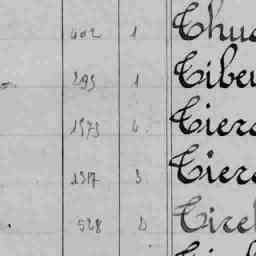 402 1 Thus
293 1 Tiber
1573 4 Tiero
1317 3 Tiero
528 6 Tirel